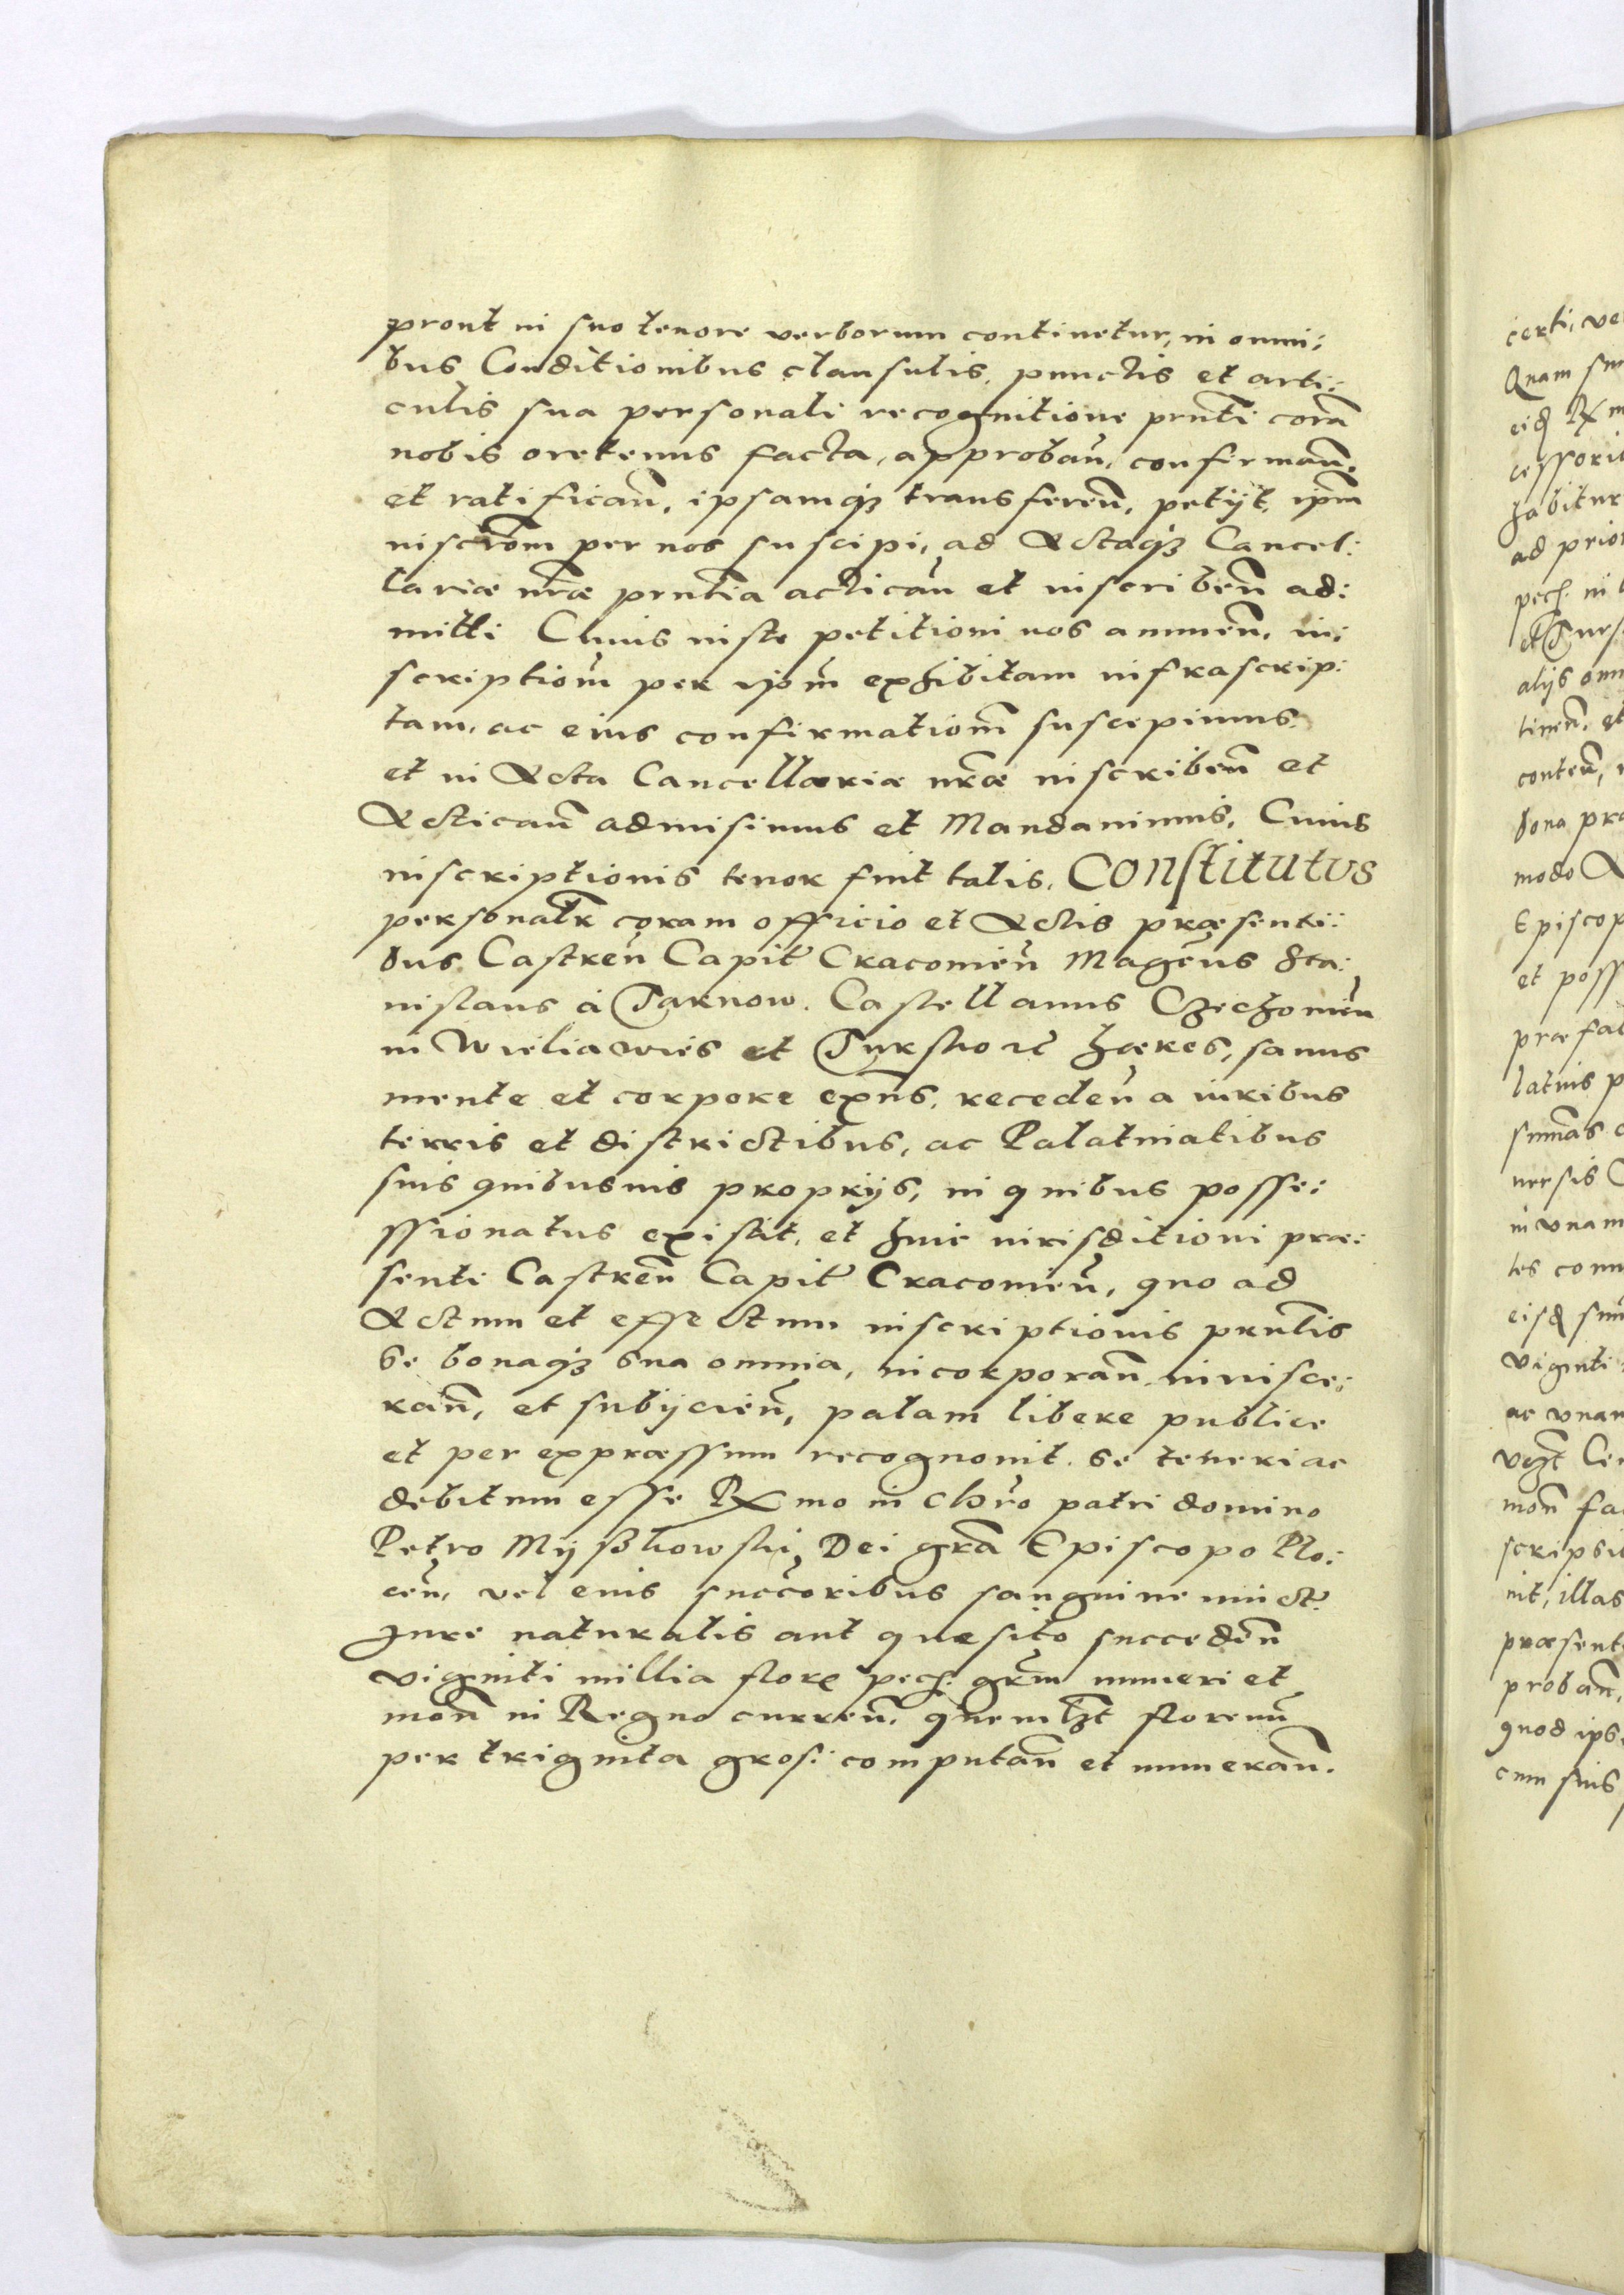 prout in suo tenore verborum continetur, in omni:
bus Conditionibus clausulis, punctis et arti:
culis sua personali recognitione prñti corã
nobis oretenus facta, approbañ, confirmañ,
et ratificañ, ipsamqȝ transfereñ, petijt, ipm̃
inscrõm per nos suscipi, ad Actaqȝ Cancel:
lariæ nr̃æ prñtia acticañ et inscribeñ ad:
mitti Cuius iustæ petitioni nos annueñ, in:
scriptiom̃ per ipom̃ exhibitam infrascrip:
tam, ac eius confirmatiom̃ suscepimus,
et in Acta Cancellariæ nr̃æ inscribeñ et
Acticañ admisimus et Mandauimus, Cuius
inscriptionis tenor fuit talis, Constitutus
personalr̃ coram officio et Actis præsenti:
bus Castreñ Capit̃ Cracouieñ Magcũs Sta:
nislaus à Tarnow. Castellanus Czechouieñ
in Wieliawies et Turskorẽ hæres, sanus
mente et corpore exñs, recedeñ a iuribus
terris et districtibus, ac Palatinatibus
suis quibusuis proprijs, in quibus posse:
ssionatus existit, et huic iurisditioni præ:
senti Castreñ Capit̃ Cracouieñ, quo ad
Actum et effectum inscriptionis prñtis
se bonaqȝ sua omnia, incorporañ inuisce:
rañ, et subijcieñ, palam libere publice
et per expræssum recognouit se teneri ac
debitum esse Rx̃mo in chr̃o patri domino
Petro Myßkowski Dei gr̃a Episcopo Plo:
ceñ, vel eius succõribus sanguine iunct̃
Jure naturalis aut quæsito succedeñ
viginti millia flore pech: gr̃m numeri et
moñ in Regno curreñ, quemlȝt florenũ
per triginta gros: computañ et numerañ.
certi, ve
Quam su
eid Rx̃m
cessorib
habitur
ad prior
pech: in
et Turs
alijs omn
tineñ, et
conteñ,
bona præ
modo A
Episcop
et poss
præfat
latius p
summas
uersis
in vnam
tes com
eisd sum
viginti
ac vnam
vȝt Ce
moñ fa
scripsi
nit, illas
præsent
probañ,
quod ips
cum suis